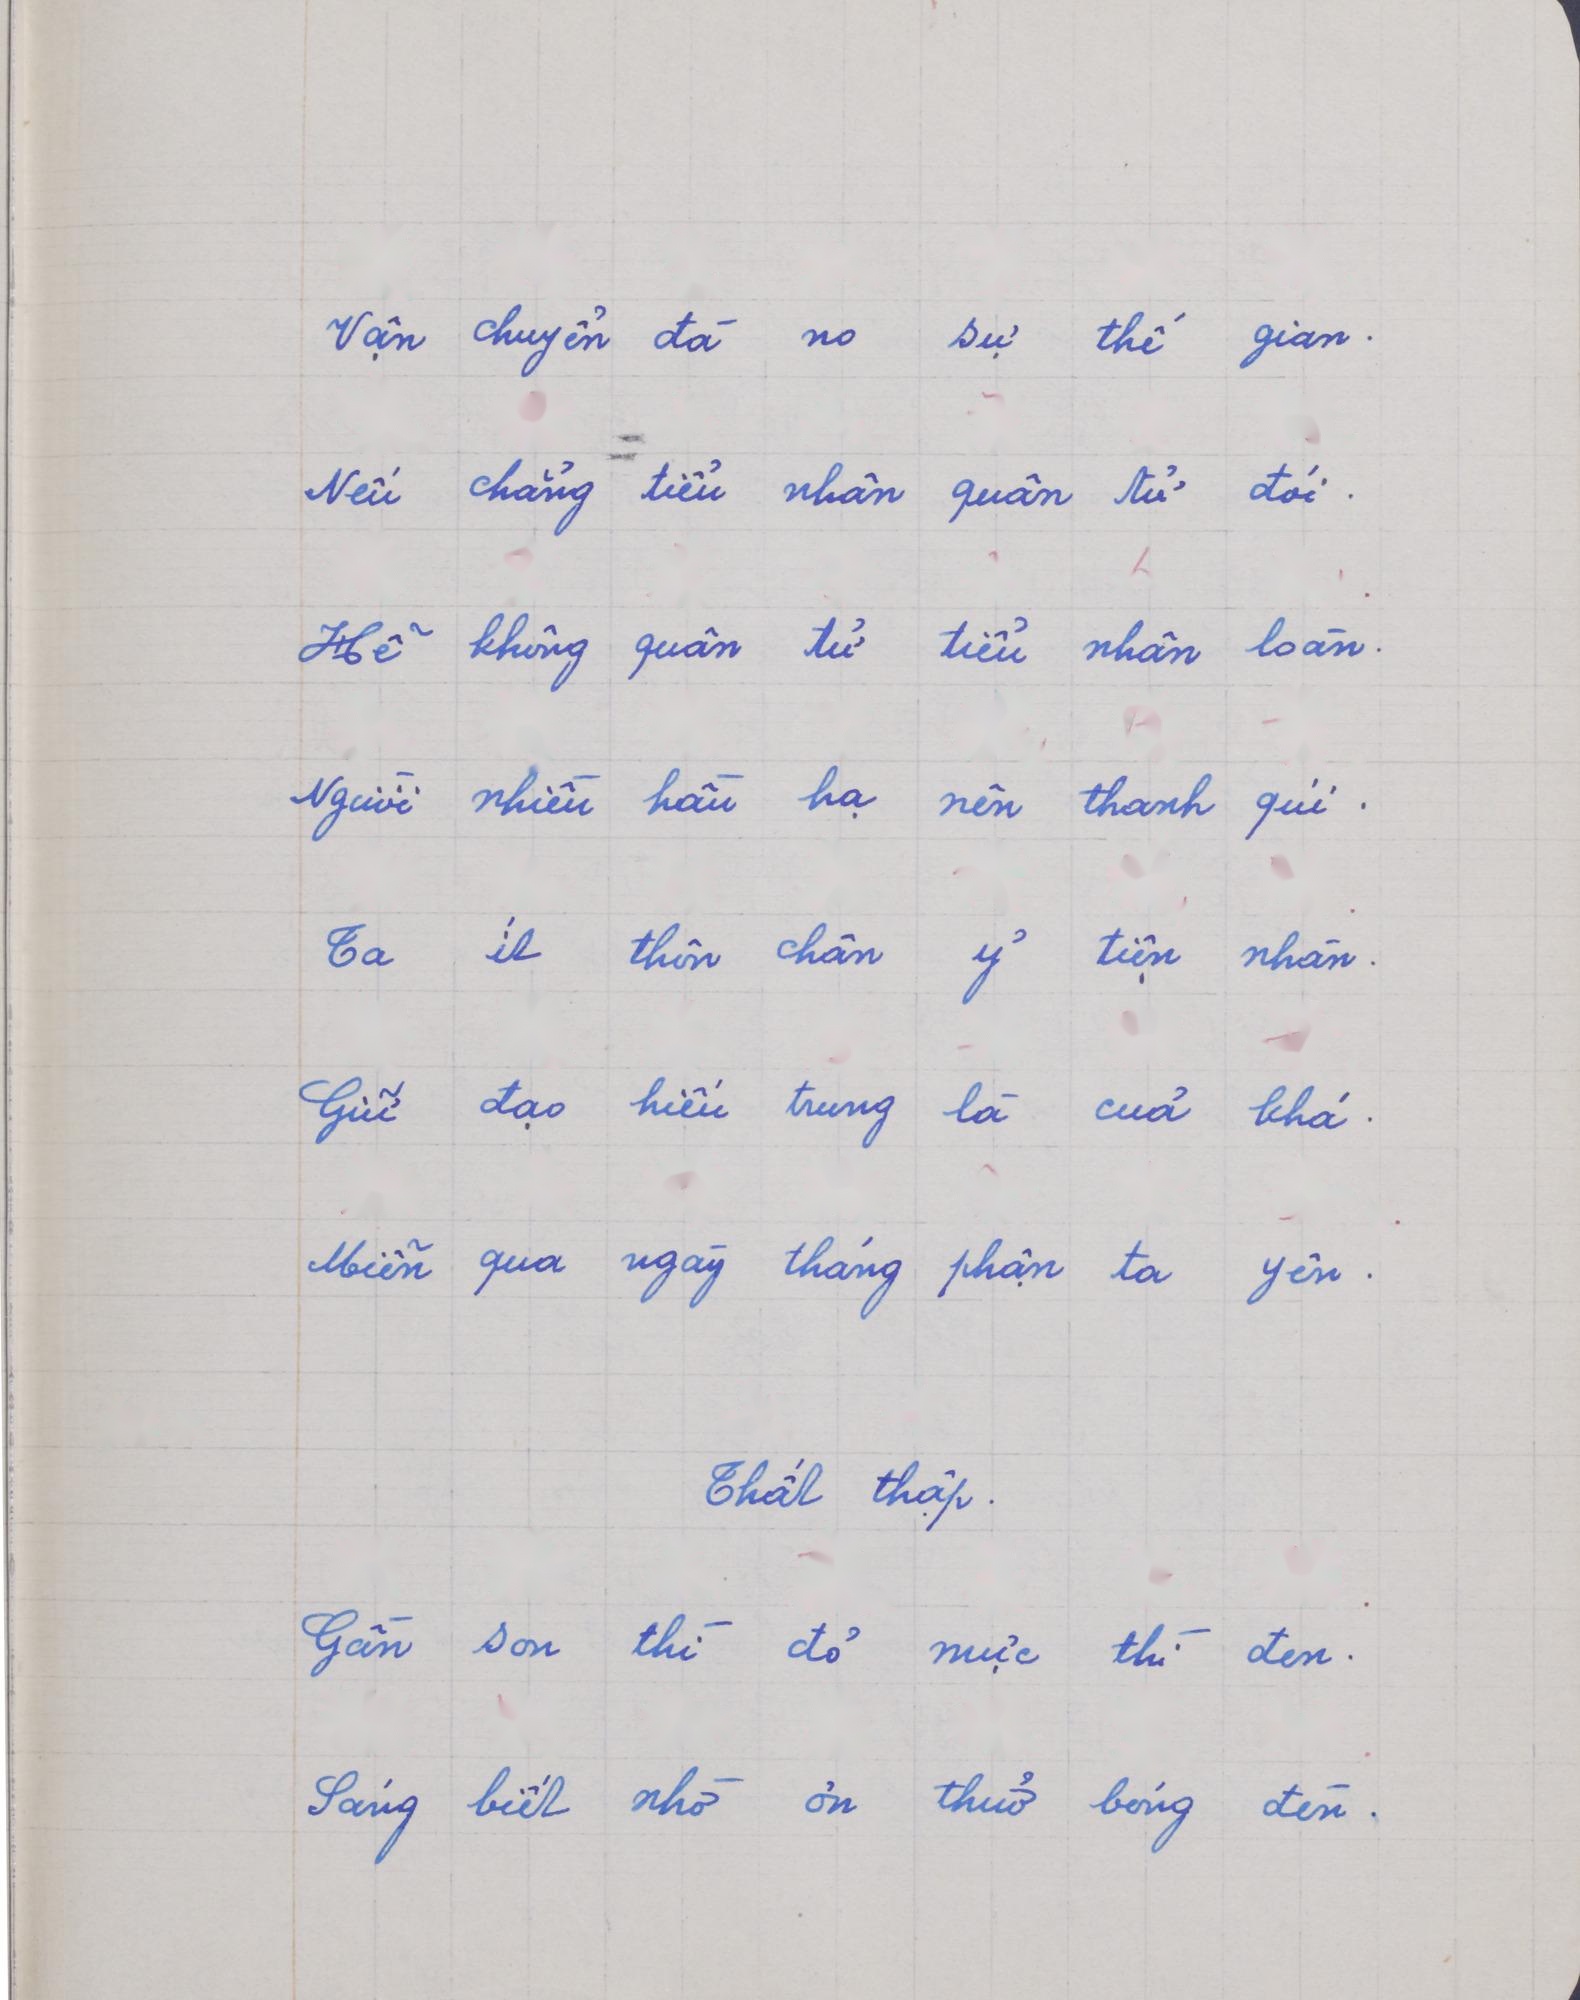 Vận chuyển đà no sự thế gian.
Nếu chăng tiểu nhân quân tử đói.
Hễ không quân tử tiểu nhân loàn.
Người nhiều hầu hạ nên thanh quí.
Ta ít thôn chân ỷ tiện nhàn.
Giữ đạo hiếu trung là của khá.
Miễn qua ngày tháng phận ta yên.
Thất thập.
Gần son thì đỏ mực thì đen.
Sáng biết nhờ ơn thuở bóng đèn.